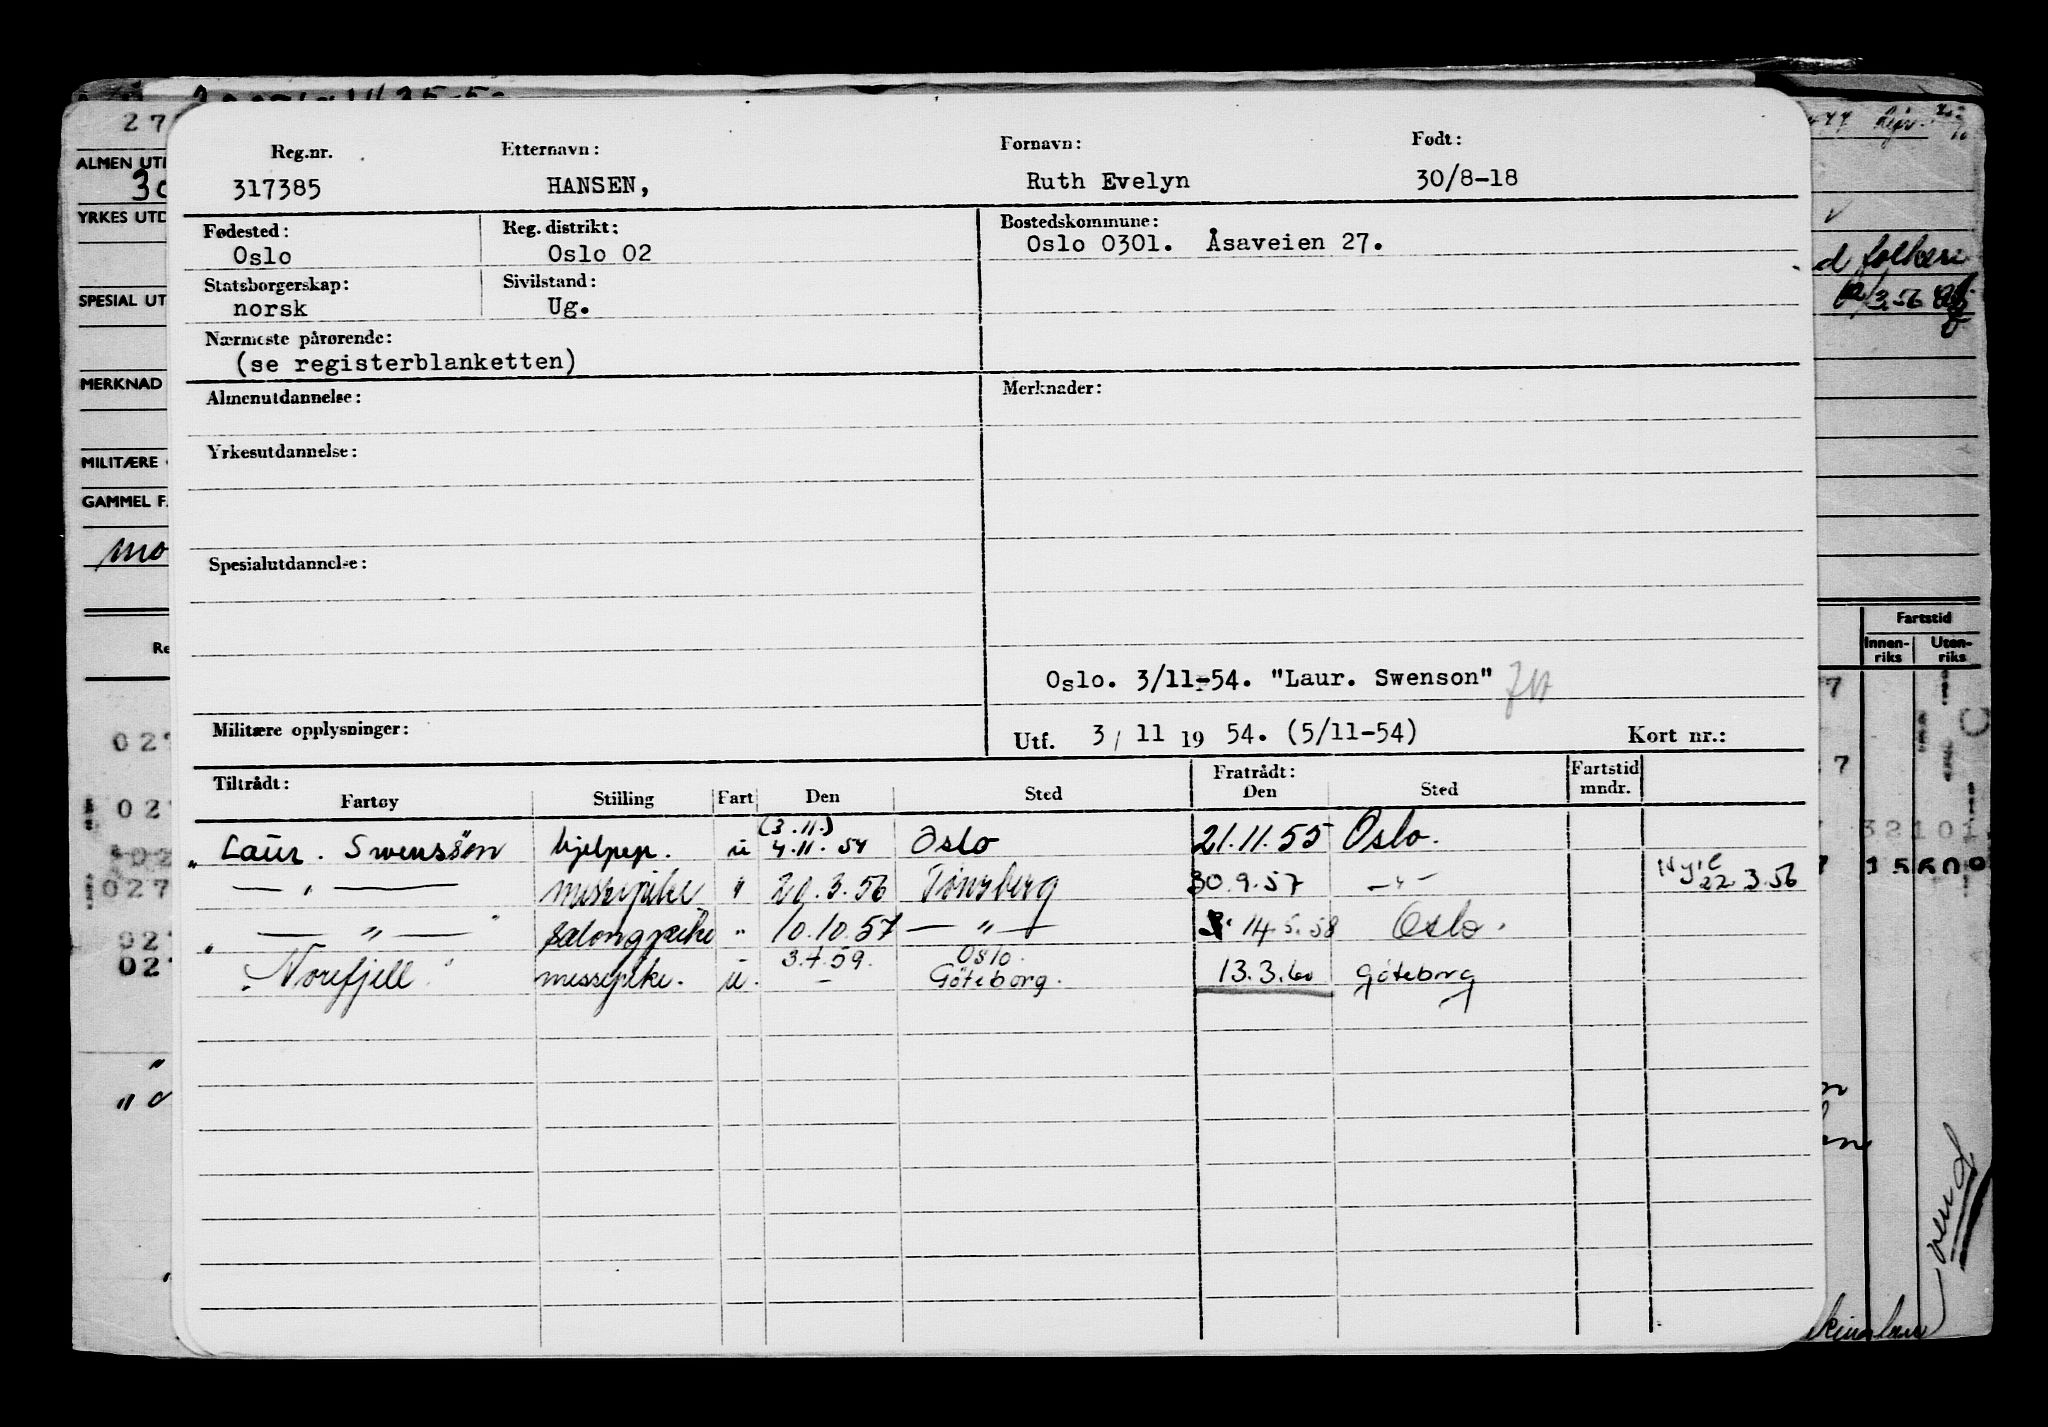 Reg.nr. Etternavn: Fornavn: Født:
317385 HANSEN, Ruth Evelyn 30/8-18
Fødested: Reg. distrikt: Bostedskommune:
Oslo Oslo 02 Oslo 0301. Åsaveien 27.
Statsborgerskap: Sivilstand:
norsk Ug.
Nærmeste pårørende:
(se registerblanketten)
Almenutdannelse: Merknader:
Yrkesutdannelse:
Spesialutdannelse:
Oslo. 3/11-54. "Laur. Swenson"
Militære opplysninger:
Utf. 3/11 19 54. (5/11-54) Kort nr.:
Tiltrådt: Fratrådt: Fartstid
Fartøy Stilling Fart Den Sted Den Sted mndr.
(3.11.)
" Laur. Swensson hjelpep. u 4.11.54 Oslo 21.11.55 Oslo.
— " — messepike " 20.3.56 Tønsberg 30.9.57 — " — 22.3.56
" — " — salongpike " 10.10.57 — " — 14.5.58 Oslo.
Oslo.
" Norefjell messepike. u. — Göteborg. 13.3.60 Göteborg
27
ALMEN UT
YRKES UTD
SPESIAL UT
MERKNAD
MILITÆRE
GAMMEL F.
mo
Re
d folkere
3.56
Fartstid
Innen-riks Uten-riks
vend